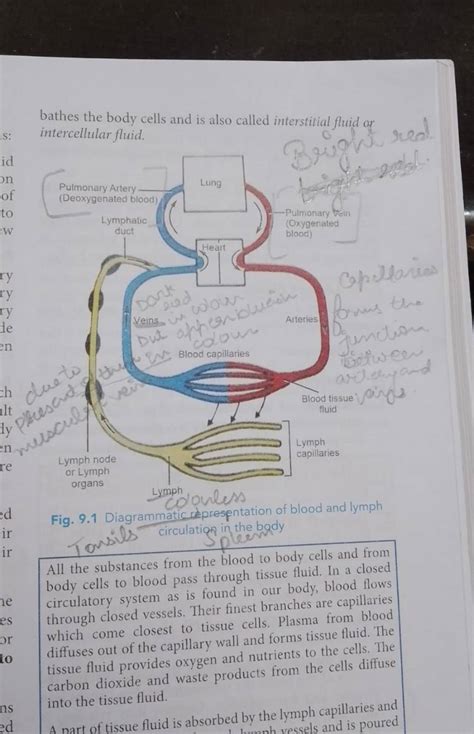 bathes the body cells and is also called interstitial fluid or
intercellular fluid.
Bright red
Pulmonary Artery
(Deoxygenated blood)
Lung
Pulmonary Vein
(Oxygenated
blood)
Lymphatic
duct
Heart
Capillaries
forms the
junction
between
artery and
Dark
red
in colour
But
Veins
colour
Arteries
due to
Blood capillaries
Blood tissue
fluid
Lymph
capillaries
Lymph node
or Lymph
organs
Lymph
colourless
Fig. 9.1 Diagrammatic representation of blood and lymph
circulation in the body
Tonsils
Spleem
All the substances from the blood to body cells and from
body cells to blood pass through tissue fluid. In a closed
circulatory system as is found in our body, blood flows
through closed vessels. Their finest branches are capillaries
which come closest to tissue cells. Plasma from blood
diffuses out of the capillary wall and forms tissue fluid. The
tissue fluid provides oxygen and nutrients to the cells. The
carbon dioxide and waste products from the cells diffuse
into the tissue fluid.
A part of tissue fluid is absorbed by the lymph capillaries and
lymph vessels and is poured